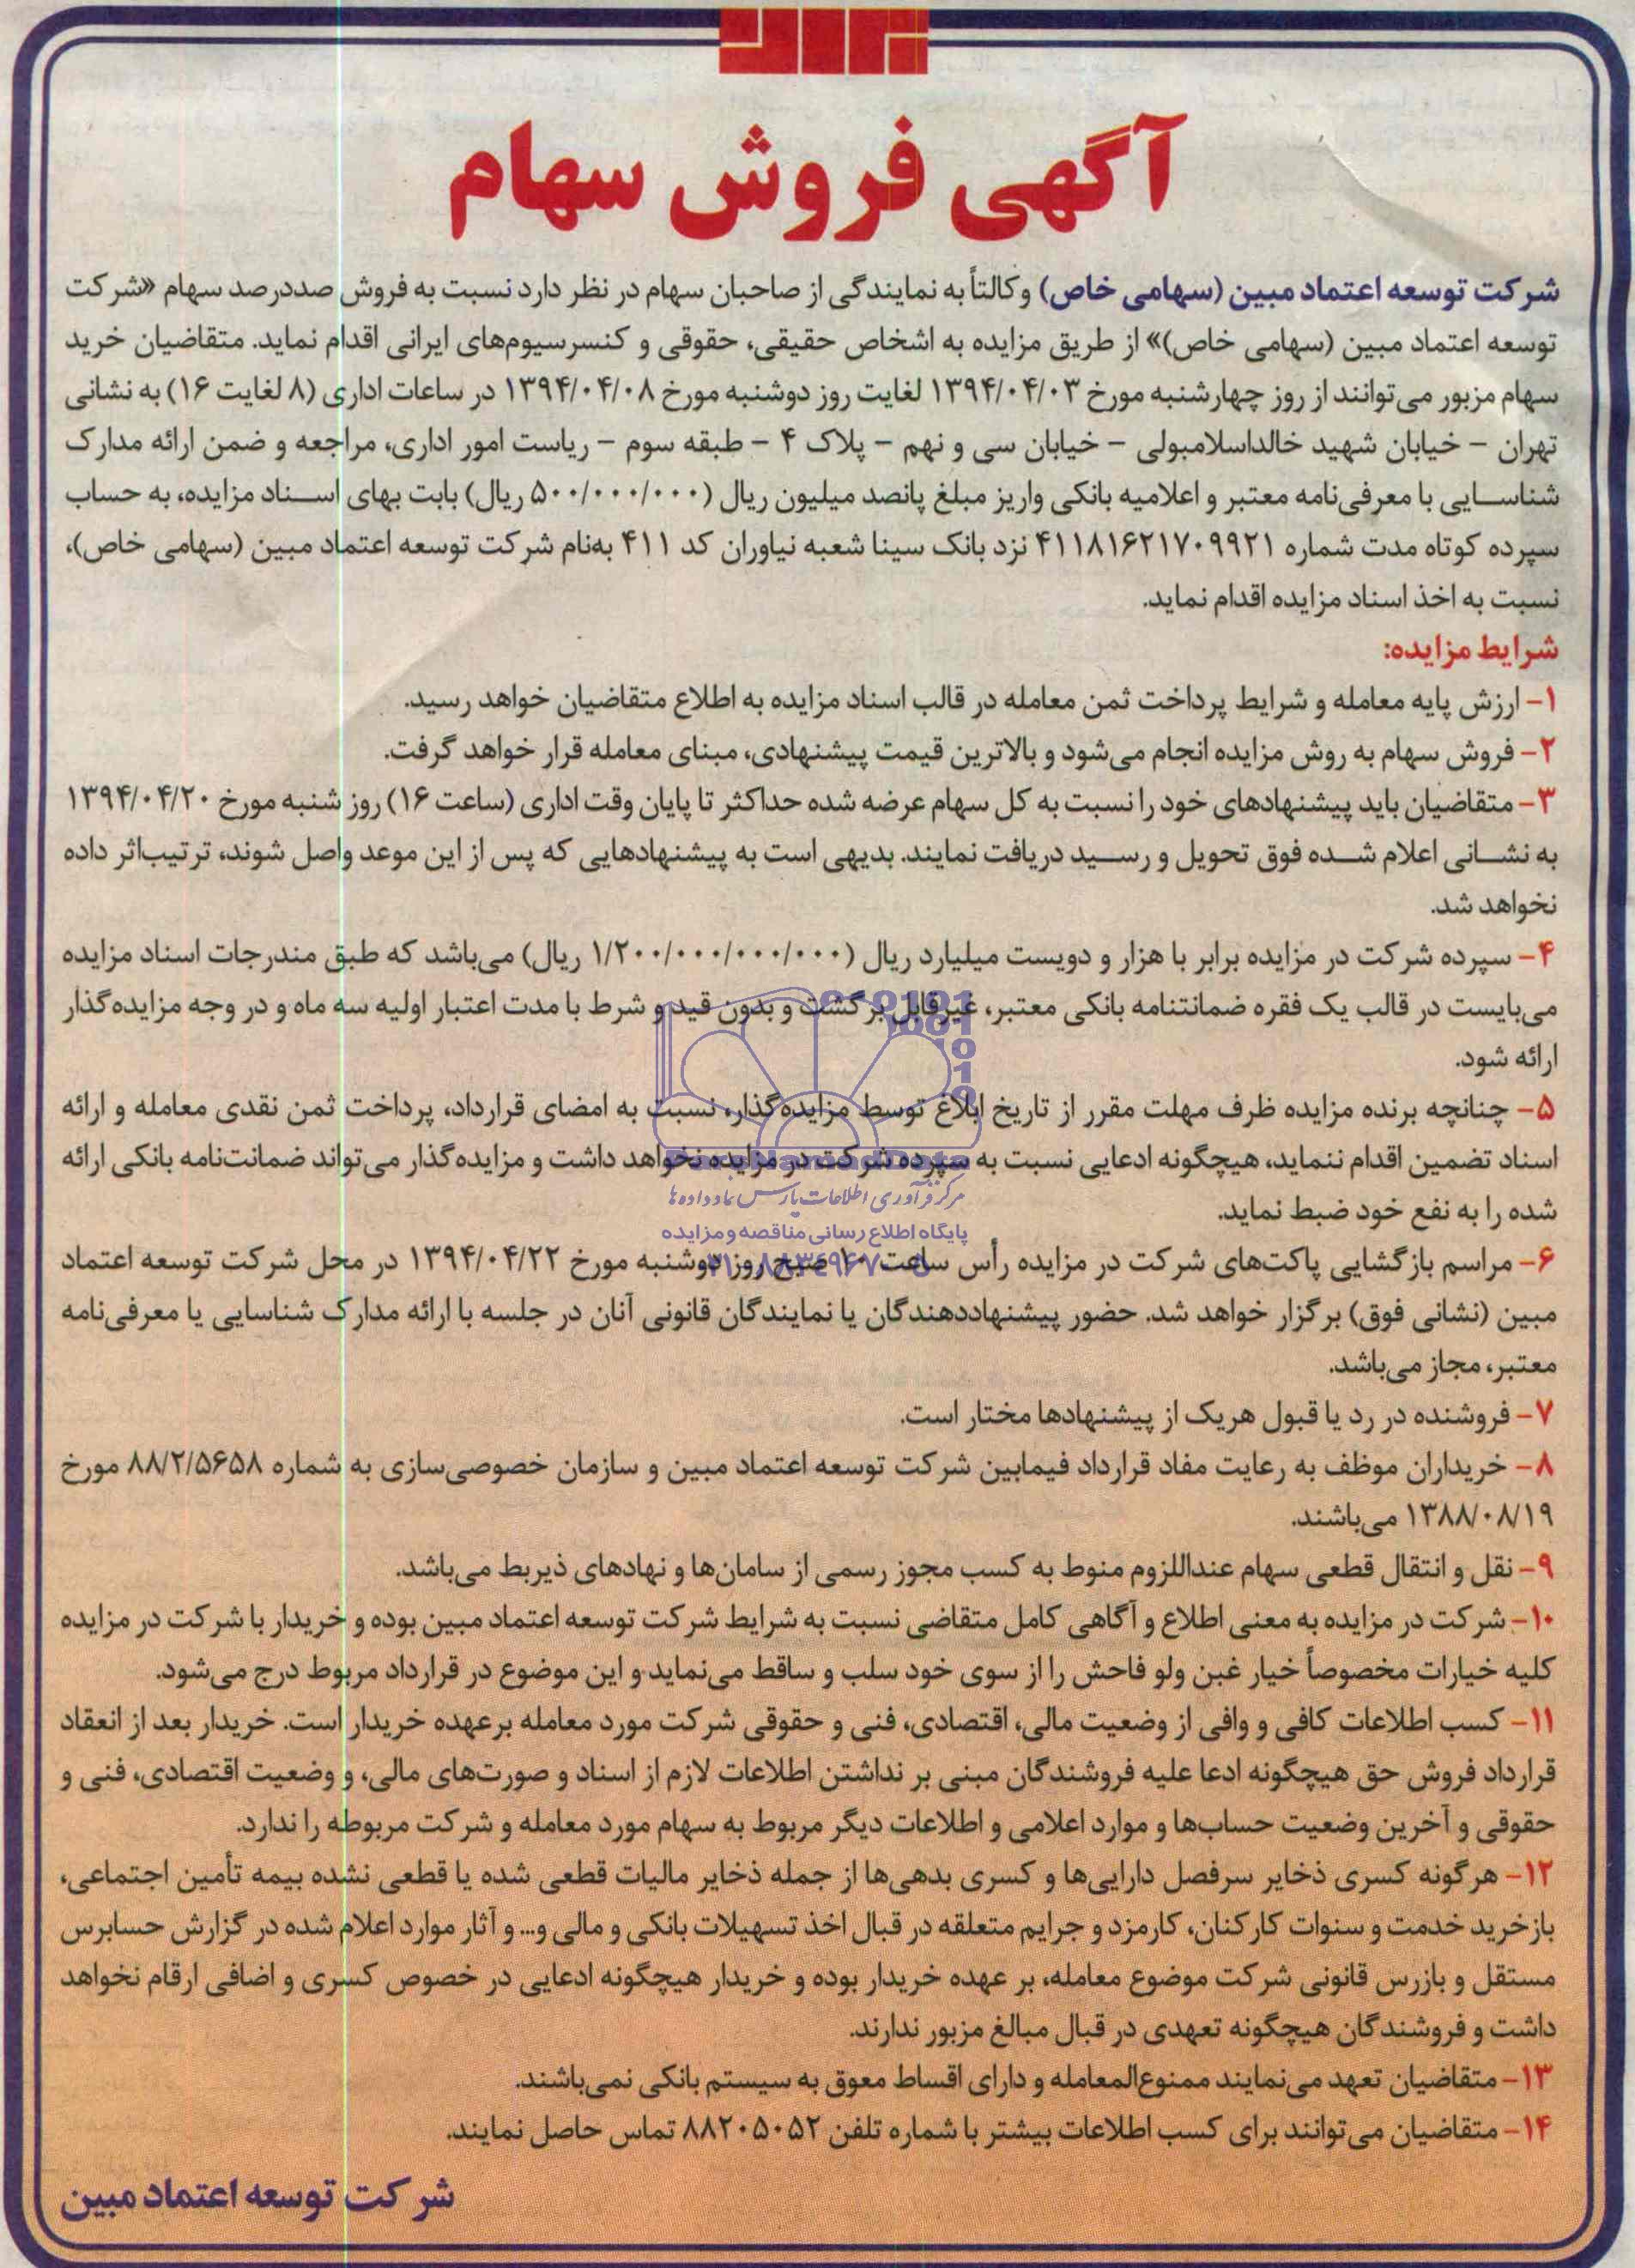 آگهی فروش سهام
شرکت توسعه اعتماد مبین (سهامی خاص) وکالتاً به نمایندگی از صاحبان سهام در نظر دارد نسبت به فروش صددرصد سهام «شرکت
توسعه اعتماد مبین (سهامی خاص)» از طریق مزایده به اشخاص حقیقی، حقوقی و کنسرسیوم‌های ایرانی اقدام نماید. متقاضیان خرید
سهام مزبور می‌توانند از روز چهارشنبه مورخ ۱۳۹۴/۰۴/۰۳ لغایت روز دوشنبه مورخ ۱۳۹۴/۰۴/۰۸ در ساعات اداری (۸ لغایت ۱۶) به نشانی
تهران - خیابان شهید خالداسلامبولی - خیابان سی و نهم - پلاک ۴ - طبقه سوم - ریاست امور اداری، مراجعه و ضمن ارائه مدارک
شناسایی با معرفی‌نامه معتبر و اعلامیه بانکی واریز مبلغ پانصد میلیون ریال (۵۰۰/۰۰۰/۰۰۰ ریال) بابت بهای اسناد مزایده، به حساب
سپرده کوتاه مدت شماره ۴۱۱۸۱۶۲۱۷۰۹۹۲۱ نزد بانک سینا شعبه نیاوران کد ۴۱۱ به‌نام شرکت توسعه اعتماد مبین (سهامی خاص)،
نسبت به اخذ اسناد مزایده اقدام نماید.
شرایط مزایده:
۱- ارزش پایه معامله و شرایط پرداخت ثمن معامله در قالب اسناد مزایده به اطلاع متقاضیان خواهد رسید.
۲- فروش سهام به روش مزایده انجام می‌شود و بالاترین قیمت پیشنهادی، مبنای معامله قرار خواهد گرفت.
۳- متقاضیان باید پیشنهادهای خود را نسبت به کل سهام عرضه شده حداکثر تا پایان وقت اداری (ساعت ۱۶) روز شنبه مورخ ۱۳۹۴/۰۴/۲۰
به نشانی اعلام شده فوق تحویل و رسید دریافت نمایند. بدیهی است به پیشنهادهایی که پس از این موعد واصل شوند، ترتیب‌اثر داده
نخواهد شد.
۴- سپرده شرکت در مزایده برابر با هزار و دویست میلیارد ریال (۱/۲۰۰/۰۰۰/۰۰۰/۰۰۰ ریال) می‌باشد که طبق مندرجات اسناد مزایده
می‌بایست در قالب یک فقره ضمانتنامه بانکی معتبر، غیرقابل برگشت و بدون قید و شرط با مدت اعتبار اولیه سه ماه و در وجه مزایده‌گذار
ارائه شود.
۵- چنانچه برنده مزایده ظرف مهلت مقرر از تاریخ ابلاغ توسط مزایده‌گذار، نسبت به امضای قرارداد، پرداخت ثمن نقدی معامله و ارائه
اسناد تضمین اقدام ننماید، هیچگونه ادعایی نسبت به سپرده شرکت در مزایده نخواهد داشت و مزایده‌گذار می‌تواند ضمانت‌نامه بانکی ارائه
مرکز فرآوری اطلاعات پارس نماد داده‌ها
شده را به نفع خود ضبط نماید.
پایگاه اطلاع رسانی مناقصه و مزایده
۶- مراسم بازگشایی پاکت‌های شرکت در مزایده رأس ساعت ۱۰ صبح روز دوشنبه مورخ ۱۳۹۴/۰۴/۲۲ در محل شرکت توسعه اعتماد
مبین (نشانی فوق) برگزار خواهد شد. حضور پیشنهاددهندگان یا نمایندگان قانونی آنان در جلسه با ارائه مدارک شناسایی یا معرفی‌نامه
معتبر، مجاز می‌باشد.
۷- فروشنده در رد یا قبول هریک از پیشنهادها مختار است.
۸- خریداران موظف به رعایت مفاد قرارداد فیمابین شرکت توسعه اعتماد مبین و سازمان خصوصی‌سازی به شماره ۸۸/۲/۵۶۵۸ مورخ
۱۳۸۸/۰۸/۱۹ می‌باشند.
۹- نقل و انتقال قطعی سهام عنداللزوم منوط به کسب مجوز رسمی از سامان‌ها و نهادهای ذیربط می‌باشد.
۱۰- شرکت در مزایده به معنی اطلاع و آگاهی کامل متقاضی نسبت به شرایط شرکت توسعه اعتماد مبین بوده و خریدار با شرکت در مزایده
کلیه خیارات مخصوصاً خیار غبن ولو فاحش را از سوی خود سلب و ساقط می‌نماید و این موضوع در قرارداد مربوط درج می‌شود.
۱۱- کسب اطلاعات کافی و وافی از وضعیت مالی، اقتصادی، فنی و حقوقی شرکت مورد معامله برعهده خریدار است. خریدار بعد از انعقاد
قرارداد فروش حق هیچگونه ادعا علیه فروشندگان مبنی بر نداشتن اطلاعات لازم از اسناد و صورت‌های مالی، و وضعیت اقتصادی، فنی و
حقوقی و آخرین وضعیت حساب‌ها و موارد اعلامی و اطلاعات دیگر مربوط به سهام مورد معامله و شرکت مربوطه را ندارد.
۱۲- هرگونه کسری ذخایر سرفصل دارایی‌ها و کسری بدهی‌ها از جمله ذخایر مالیات قطعی شده یا قطعی نشده بیمه تأمین اجتماعی،
بازخرید خدمت و سنوات کارکنان، کارمزد و جرایم متعلقه در قبال اخذ تسهیلات بانکی و مالی و... و آثار موارد اعلام شده در گزارش حسابرس
مستقل و بازرس قانونی شرکت موضوع معامله، بر عهده خریدار بوده و خریدار هیچگونه ادعایی در خصوص کسری و اضافی ارقام نخواهد
داشت و فروشندگان هیچگونه تعهدی در قبال مبالغ مزبور ندارند.
۱۳- متقاضیان تعهد می‌نمایند ممنوع‌المعامله و دارای اقساط معوق به سیستم بانکی نمی‌باشند.
۱۴- متقاضیان می‌توانند برای کسب اطلاعات بیشتر با شماره تلفن ۸۸۲۰۵۰۵۲ تماس حاصل نمایند.
شرکت توسعه اعتماد مبین